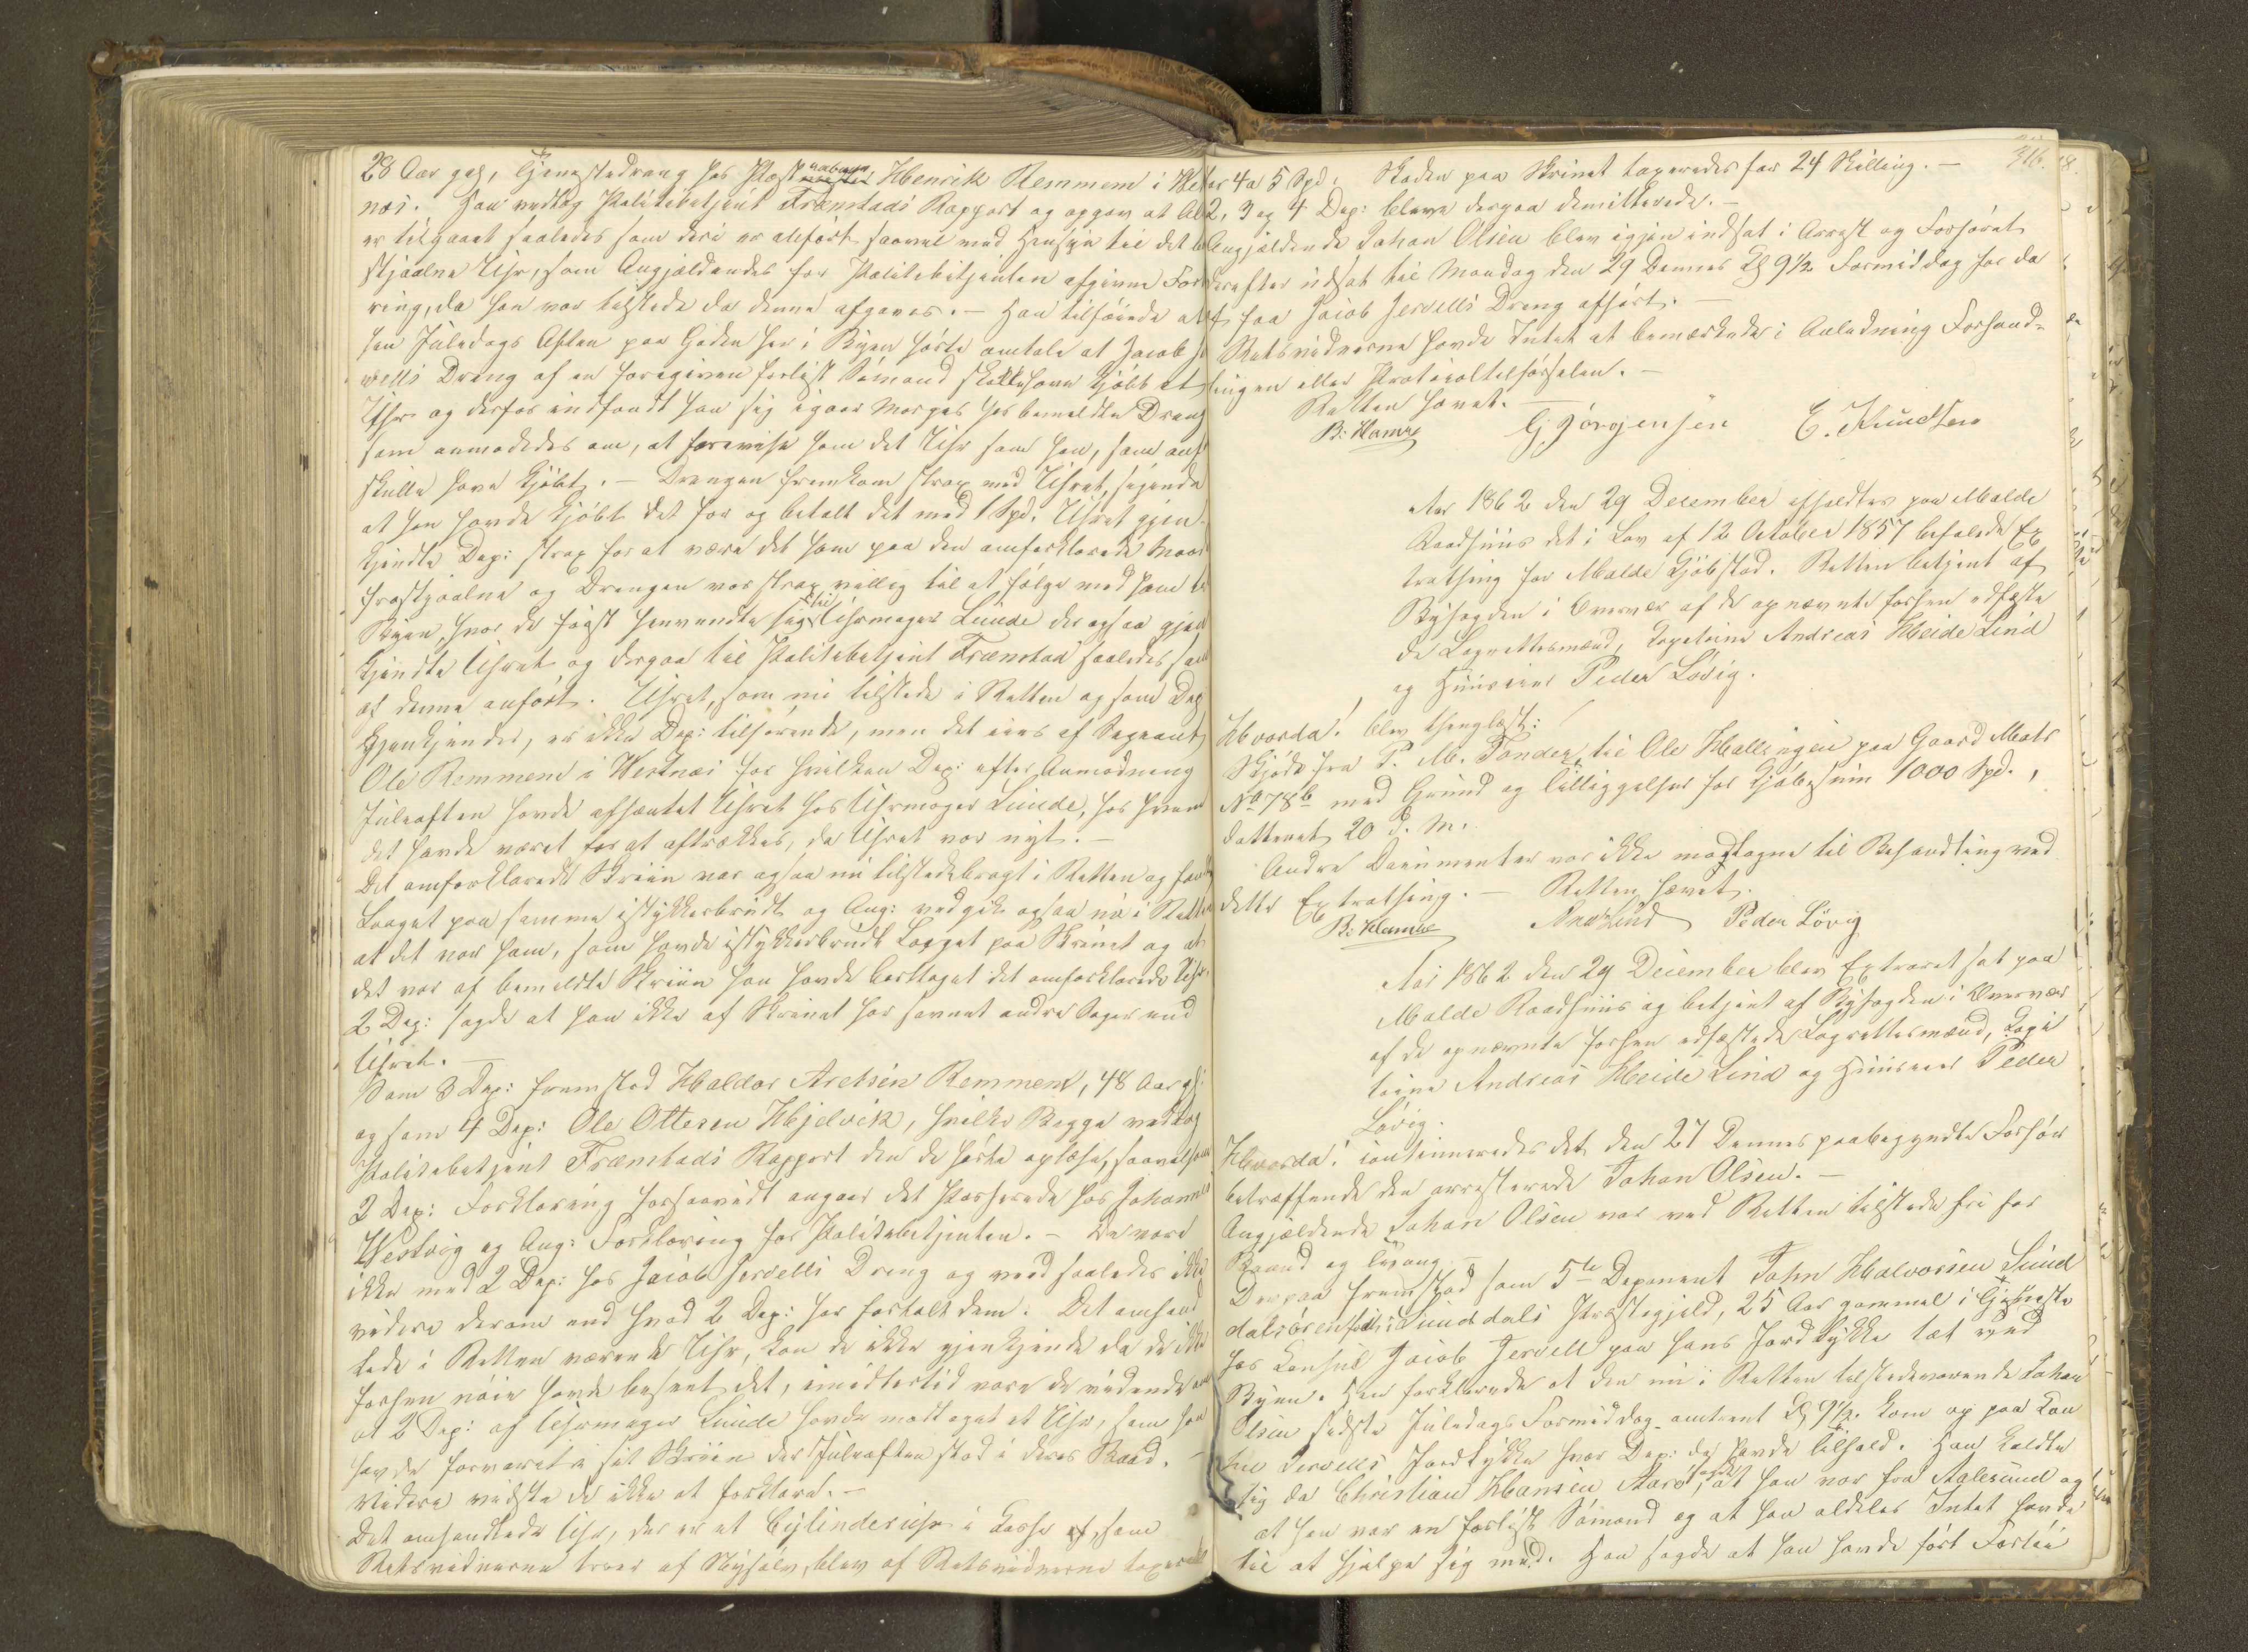 28 Aar gl, Tjenestedreng hos Henrik Remmem i West
næs. Han vedtog Politibetjent Fræmstads Rapport og opgav at Al
er tilgaaet saaledes som deri er anført saavel med Hensyn til det
stjaalne Uhr, som Angjældendes for Politibetjenten afgivne For
ring, da han var tilstede da denne afgaves. — Han tilføiede at
han Juledags Aften paa Gaden her i Byen hørte omtale at Jacob Je
rvells Dreng af en foregiven forlist Sømand skulle have kjøbt et
Uhr og derfor indfandt han sig igaar Morges hos bemeldte Dreng
som anmodedes om, at forevise ham det Uhr som han, som anf
skulle have kjøbt. — Drengen fremkom strax med Uhret, sigende
at han havde kjøbt det for og betalt det med 1 Spd. Uhret gjen-
kjendte Dep: strax for at være det ham paa den omforklarede Maade
frastjaalne og Drengen var strax villig til at følge med ham til
Byen, hvor de først henvendte sig til Uhrmager Lunde der ogsaa gjen
kjendte Uhret og derpaa til Politibetjent Fræmstad saaledes som
af denne anført. Uhret, som nu tilstede i Retten og som Dep
gjenkjender, er ikke Dep: tilhørende, men det eies af Sergeant
Ole Remmem i Westnæs for hvilken Dep: efter Anmodning
Juleaften havde afhentet Uhret hos Uhrmager Lunde, hos hvem
det havde været for at aftrækkes, da Uhret var nyt. —
Det omforklarede Skriin var ogsaa nu tilstedebragt i Retten og fandtes
Laaget paa samme istykkerbrudt og Ang: vedgik ogsaa nu i Retten
at det var ham, som havde istykkerbrudt Laaget paa Skrinet og at
det var af bemeldte Skriin han havde borttaget det omforklarede Uhr.
2 Dep: sagde at han ikke af Skrinet har savnet andre Sager end
Uhret. —
Som 3 Dep: fremstod Haldor Aretsen Remmem, 48 Aar gl:
og som 4 Dep: Ole Ottesen Hjelvik, hvilke Begge vedtog
Politibetjent Fræmstads Rapport den de hørte oplæse, saavelsom
2 Dep: Forklaring forsaavidt angaar det Passerede hos Johannes
Westvig og Ang: Forklaring for Politibetjenten. — De vare
ikke med 2 Dep: hos Jacob Jervells Dreng og veed saaledes ikke
videre derom end hvad 2 Dep: har fortalt dem. Det omhand
lede i Retten værende Uhr, kan de ikke gjenkjende da de ikke
forhen nøie havde beseet det, imidlertid vare de vidende om
at 2 Dep: af Uhrmager Lunde havde modtaget et Uhr, som han
havde forvaret i sit Skriin der Juleaften stod i deres Baad. —
Videre vidste de ikke at forklare. —
Det omhandlede Uhr, der er et Cylinderuhr i Kasse af, som
Retsvidnerne troer af Nysølv, blev af Retsvidnerne taxeret
316.
for 4 a 5 Spd. Skaden paa Skrinet taxeredes for 24 Skilling. —
2, 3 og 4 Dep: bleve derpaa dimitterede. —
Angjældende Johan Olsen blev igjen indsat i Arrest og Forhøret
derefter udsat til Mandag den 29 Dennes Kl 9½ Formiddag for da
at faa Jacob Jervells Dreng afhørt. —
Retsvidnerne havde Intet at bemærke i Anledning Forhand-
lingen eller Protocoltilførselen. —
Retten hævet. —
B. Hamre G. Jørgensen E. Knudsen
Aar 1862 den 29 December afholdtes paa Molde
Raadhuus det i Lov af 12 October 1857 befalede Ex
trathing for Molde Kjøbstad. Retten betjent af
Byfogden i Overvær af de opnævnte forhen edfæste
de Lagrettesmænd, Capitaine Andreas Heide Lind
og Huuseier Peder Løvig.
Hvorda! blev thinglæst:
Skjøde fra P. M. Tonder til Ole Hallingen paa Gaard Matr
No 78b med Grund og Tilliggelser for Kjøbesum 1000 Spd.,
dateret 20 d. M.
Andre Documenter var ikke modtagne til Behandling ved
dette Extrathing. — Retten hævet.
B. Hamre And Lind Peder Løvig
Aar 1862 den 29 December blev Extraret sat paa
Molde Raadhuus og betjent af Byfogden i Overvær
af de opnævnte forhen edfæstede Lagrettesmænd, Capi
taine Andreas Heide Lind og Huuseier Peder
Løvig.
Hvorda! continueredes det den 27 Dennes paabegyndte Forhør
betræffende den arresterede Johan Olsen. —
Angjældende Johan Olsen var ved Retten tilstede fri for
Baand og Tvang. —
Derpaa fremstod som 5te Deponent John Halvorsen Sund
dalsøren født i Sunddals Præstegjeld, 25 Aar gammel i Tjeneste
hos Consul Jacob Jervell paa hans Jordstykke tæt ved
Byen. Han forklarede at den nu i Retten tilstedeværende Johan
Olsen sidste Juledags Formiddag omtrent Kl 9½ kom op paa Con
sul Jervells Jordstykke hvor Dep: da havde Tilhold. Han kaldte
sig da Christian Hansen Aarø, sagde at han var fra Aalesund og
at han var en forlist Sømand og at han aldeles Intet havde
til at hjælpe sig med. Han sagde at han havde ført Forlii